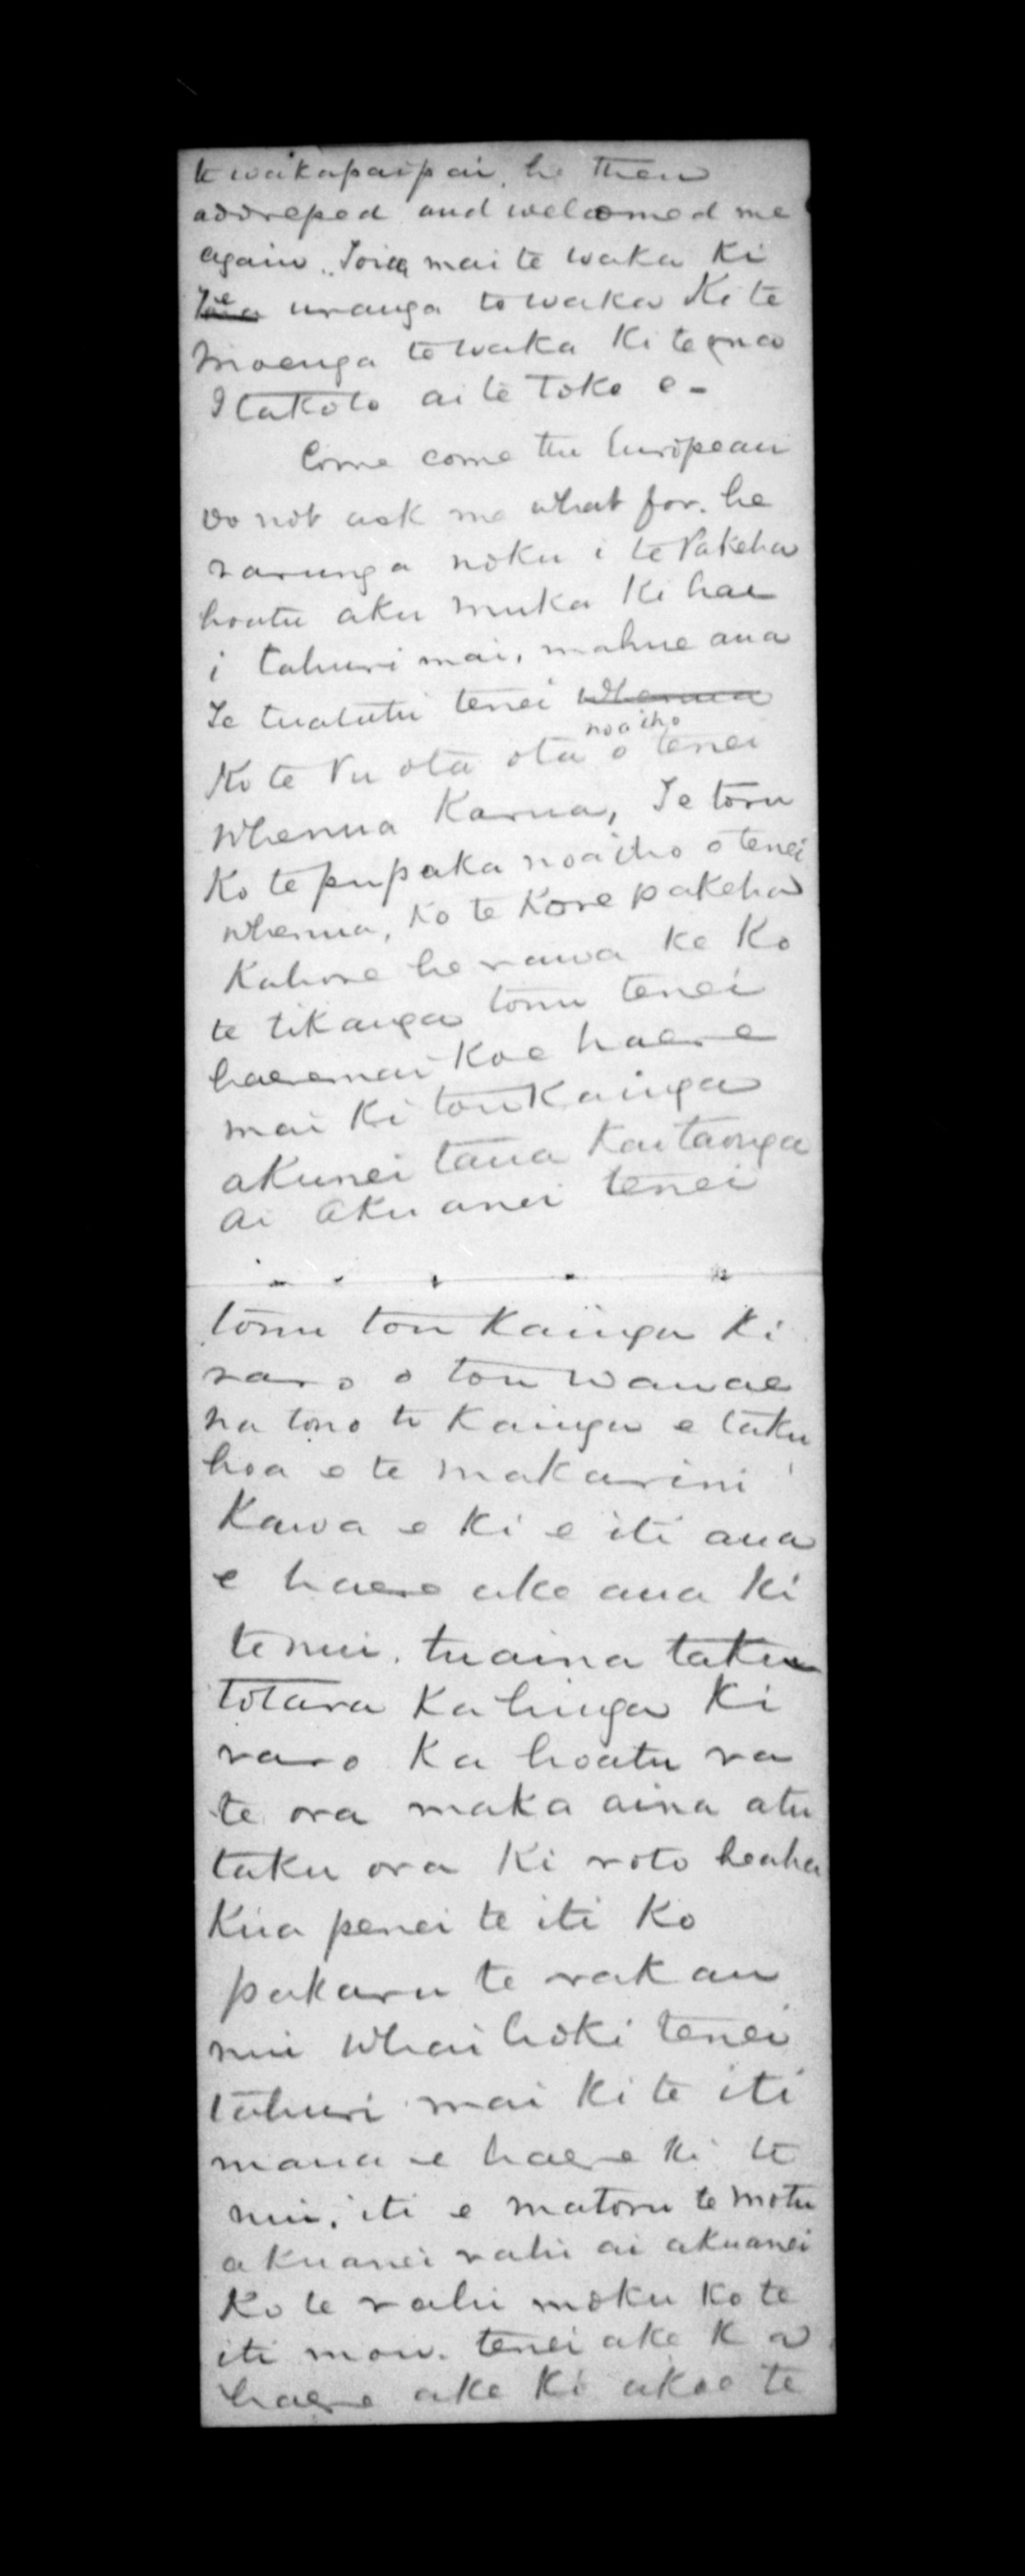 te wakapaipai, he then
addressed and welcomed me
again. Toia mai te waka ki
te uranga te waka Ki te
moenga te waka Ki te
I takoto ai te Toko e -
Come come the European
Do not ask me what for. he
rarunga noku i te Pakeha
hoatu aku muka Ki hae
i tahuri mai, mahue ana
Te tuatutu tenei whenua
noa iho
Ko te Pu ota ota o tenei
Whenua Karua, Te toru
Ko te pupaka noa iho o tenei
whenua, Ko te Kore pakeha
Kahore he rawa ke Ko
te tikanga tonu tenei
haeremai Koe haere
mai Ki tou Kainga
akunei taua Kai taonga
ai akuanei tenei
tonu tou Kainga Ki
raro o tou wawae
na tono te Kainga e taku
hoa e te makarini
Kawa e Ki e iti ana
e haere ake ana Ki
te nui. tuaina taku
totara Ka hinga Ki
raro Ka hoatu ra
te ora maka aina atu
taku ora Ki roto heaha
Kiia penei te iti Ko
pakaru te rakau
nui whai hoki tenei
tahuri mai Ki te iti
mana e haere Ki te
nui. iti e matoru te motu
akuanei rahi ai akuanei
Ko te rahi moku Ko te
iti mou. tenei ake Ka
haere ake Ki akoe te